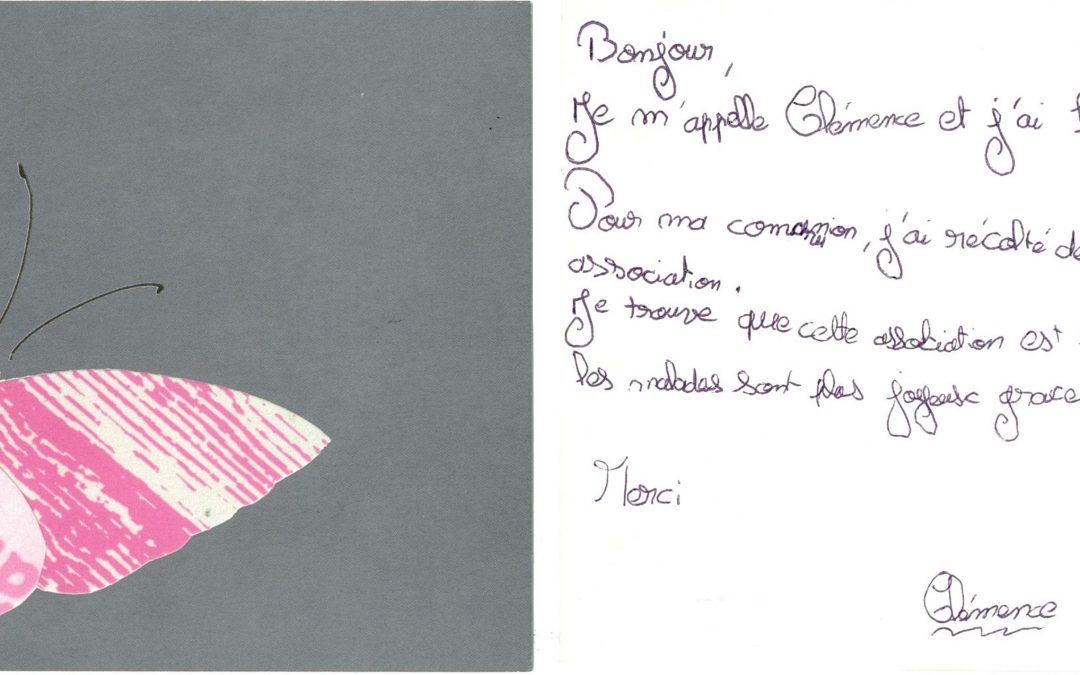 Bonjour,
Je m'appelle Clémence et j'ai
Pour ma communion, j'ai récolté de
association.
Je trouve que cette association est
les malades sont plus joyeux grace
Merci
Clémence